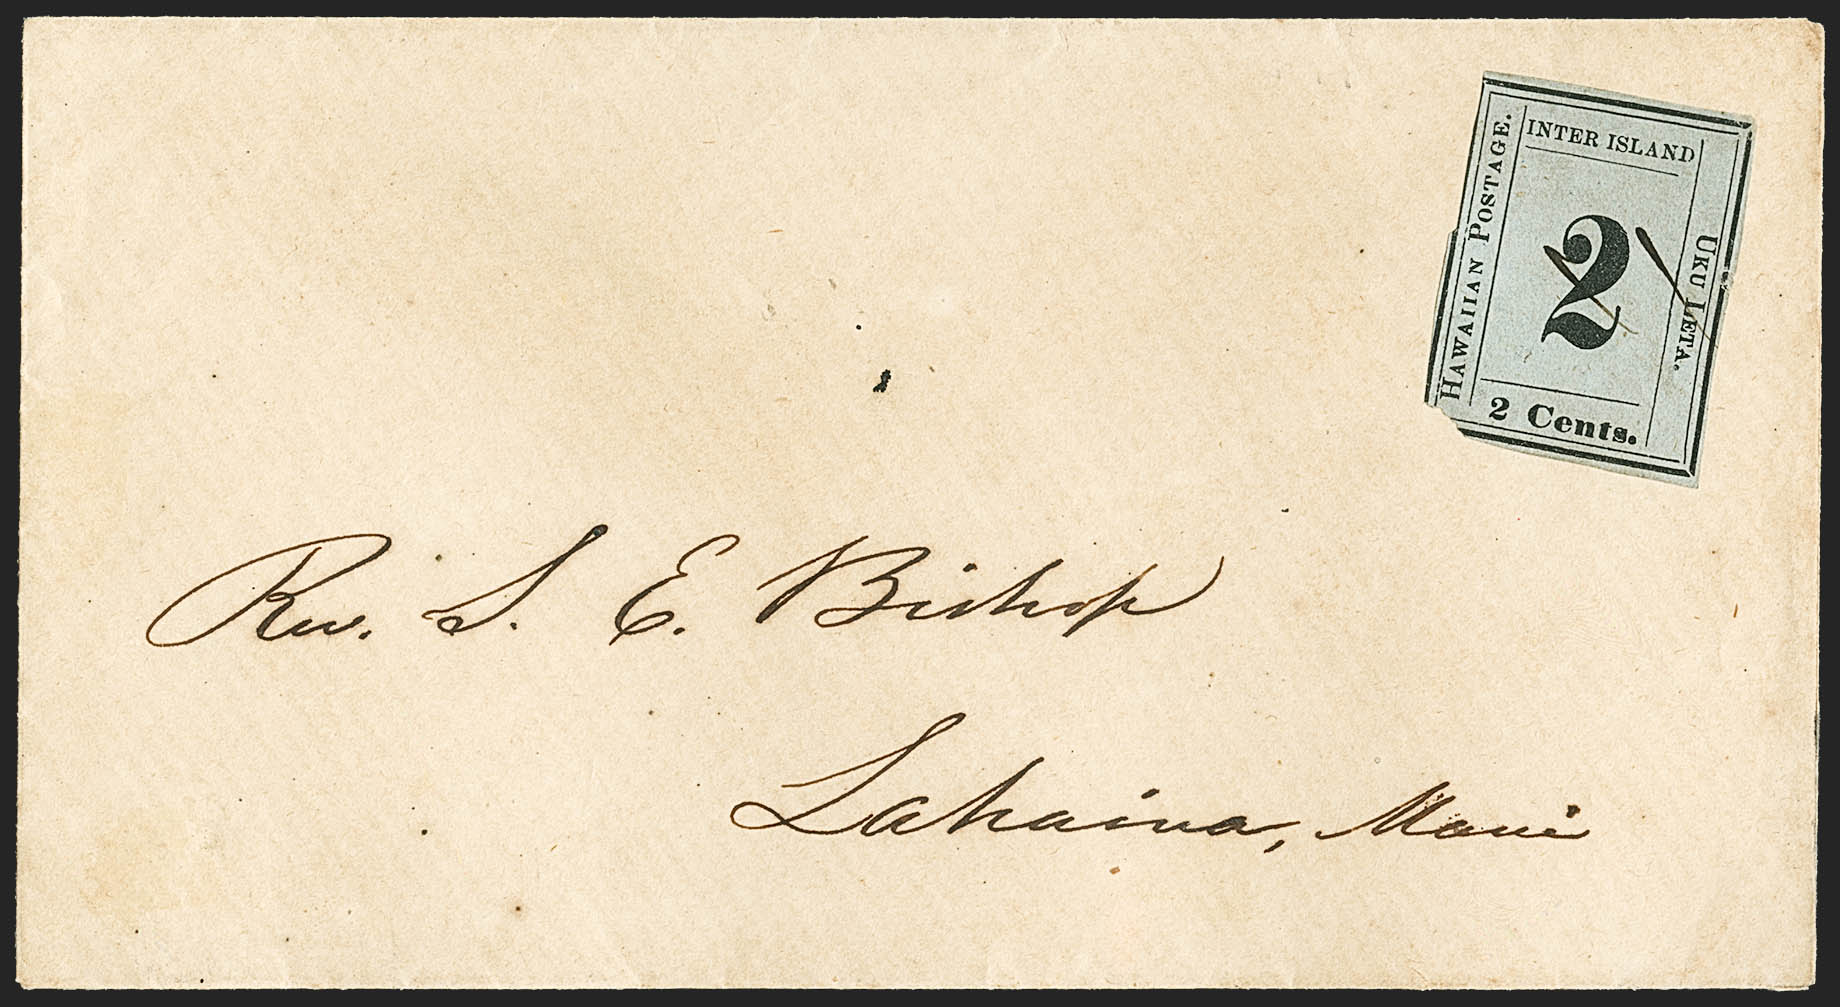 INTER ISLAND
HAWAIIAN POSTAGE.
2
UKU LETA.
2 Cents.
Rev. S. E. Bishop
Lahaina, Maui